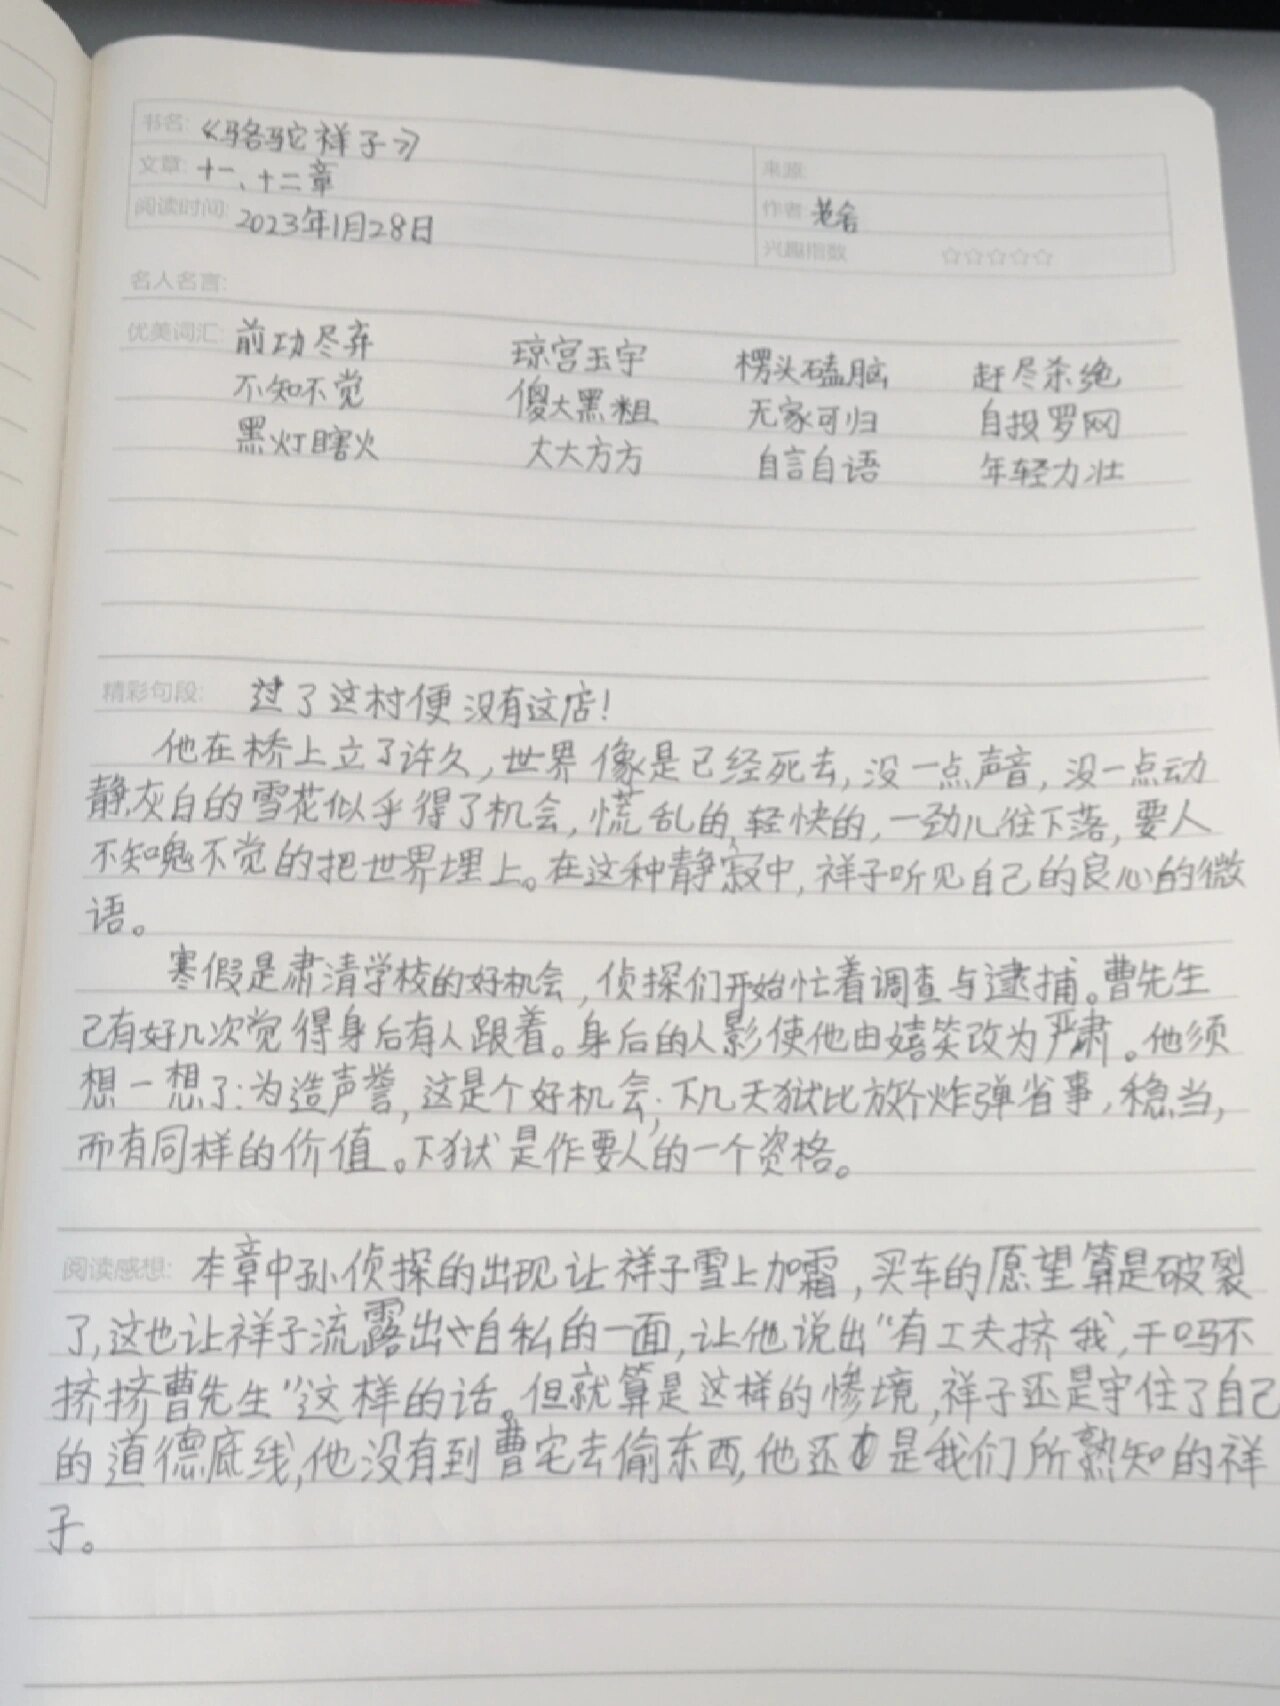 书名: 《骆驼祥子》
文章: 十一、十二章
来源:
阅读时间: 2023年1月28日
作者: 老舍
兴趣指数 ☆☆☆☆☆
名人名言:
优美词汇: 前功尽弃 琼宫玉宇 楞头磕脑 赶尽杀绝
不知不觉 傻大黑粗 无家可归 自投罗网
黑灯瞎火 大大方方 自言自语 年轻力壮
精彩句段: 过了这村便没有这店!
他在桥上立了许久,世界像是已经死去,没一点声音,没一点动
静,灰白的雪花似乎得了机会,慌乱的,轻快的,一劲儿往下落,要人
不知鬼不觉的把世界埋上。在这种静寂中,祥子听见自己的良心的微
语。
寒假是肃清学校的好机会,侦探们开始忙着调查与逮捕。曹先生
已有好几次觉得身后有人跟着。身后的人影使他由嬉笑改为严肃。他须
想一想了:为造声誉,这是个好机会;下几天狱比放个炸弹省事,稳当,
而有同样的价值。下狱是作要人的一个资格。
阅读感想: 本章中孙侦探的出现让祥子雪上加霜,买车的愿望算是破裂
了,这也让祥子流露出自私的一面,让他说出“有工夫挤我,干吗不
挤挤曹先生”这样的话。但就算是这样的惨境,祥子还是守住了自己
的道德底线,他没有到曹宅去偷东西,他还是我们所熟知的祥
子。